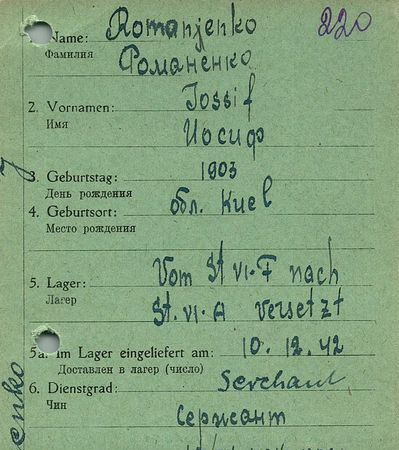 1. Name: Romanjenko 220
Фамилия Романенко
2. Vornamen: Iossif
Имя Иосиф
3. Geburtstag: 1903
День рождения
4. Geburtsort: обл. Киев
Место рождения
5. Lager: Vom St VI-F nach
Лагер St. VI-A versetzt
5a. Im Lager eingeliefert am: 10. 12. 42
Доставлен в лагер (число)
6. Dienstgrad: Serchant
Чин Сержант
enko